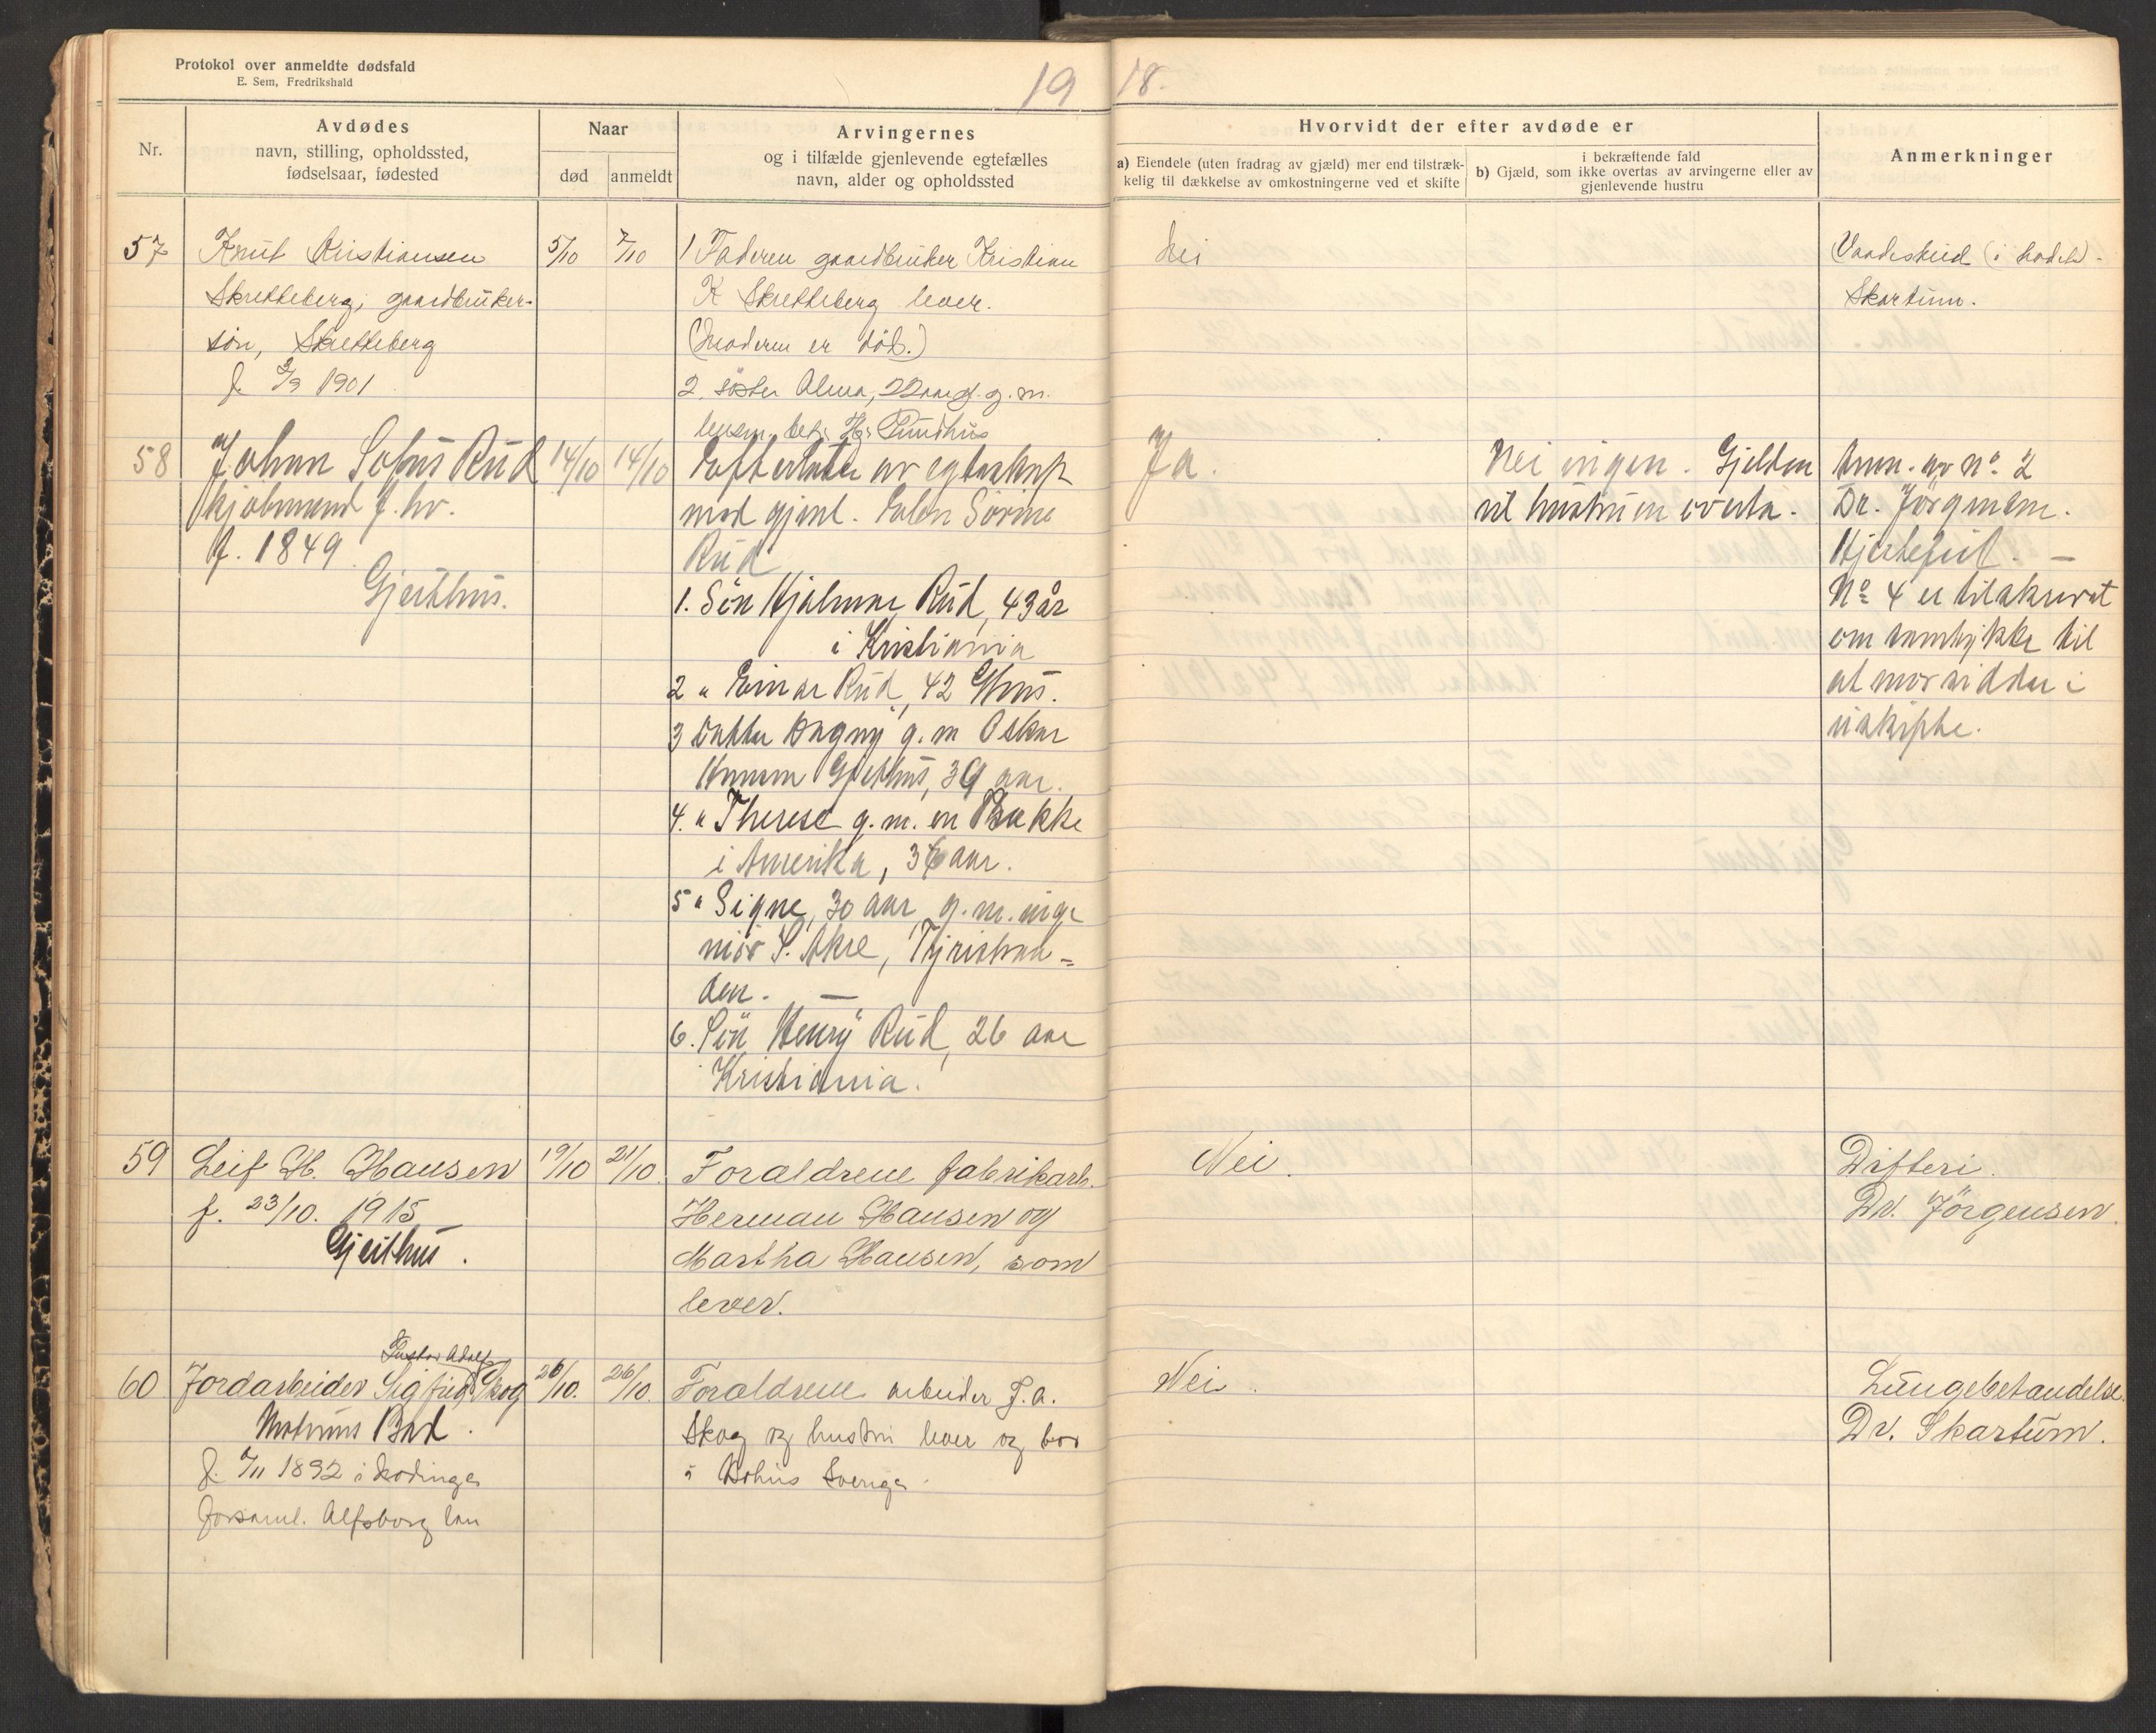 Protokol over anmeldte dødsfald
E. Sem, Fredrikshald
19 18.
Nr.
Avdødes
navn, stilling, opholdssted,
fødselsaar, fødested
Naar
død
anmeldt
Arvingernes
og i tilfælde gjenlevende egtefælles
navn, alder og opholdssted
Hvorvidt der efter avdøde er
a) Eiendele (uten fradrag av gjæld) mer end tilstræk-
kelig til dækkelse av omkostningerne ved et skifte
i bekræftende fald
b) Gjæld, som ikke overtas av arvingerne eller av
gjenlevende hustru
Anmerkninger
57
Knut Kristiansen
Skretteberg, gaardbruker-
søn, Skretteberg
f. 2/9 1901
5/10
7/10
1 Faderen gaardbruker Kristian
K Skretteberg lever.
(Moderen er død.)
2. søster Alma, 22 aar g. m.
lensm. betj. H.
Nei
Vaadeskud (i hodet) -
Skartum.
58
Johan Sofus Rud
f. hv.
f. 1849
Geithus.
14/10
14/10
Efterlater av egteskap
med gjenl. Elen Sørine
Rud
1. Søn Hjalmar Rud, 43 år
i Kristiania
2 " Einar Rud, 42 Ghus.
3 Datter Dagny g. m Oskar
Geithus, 39 aar.
4. " Therese g. m. en Bakke
i Amerika, 36 aar.
5 " Signe, 30 aar g. m. inge
niør S. Akre, Tyristran-
den. —
6. Søn Henry Rud, 26 aar
Kristiania.
Ja.
Nei ingen. Gjelden
vil hustruen overta.
Anm. av No. 2
Dr. Jörgensen.
Hjertefeil. —
No 4 er tilskrevet
om samtykke til
at mor sidder i
uskifte.
59
Leif H. Hansen
f. 23/10. 1915
Geithus.
19/10
21/10.
Forældrene fabrikarb.
Herman Hansen og
Martha Hansen, som
lever.
Nei.
Difteri.
Dr. Jörgensen.
60
Gustav Adolf
Jordarbeider Sigfrid Skog
Modums Bad.
f. 7/11 1892 i
forsaml. Alfsborg lan
26/10.
26/10.
Forældrene arbeider J. A.
Skog og hustru lever og bor
i Bohus Sverige.
Nei.
Lungebetændelse.
Dr. Skartum.